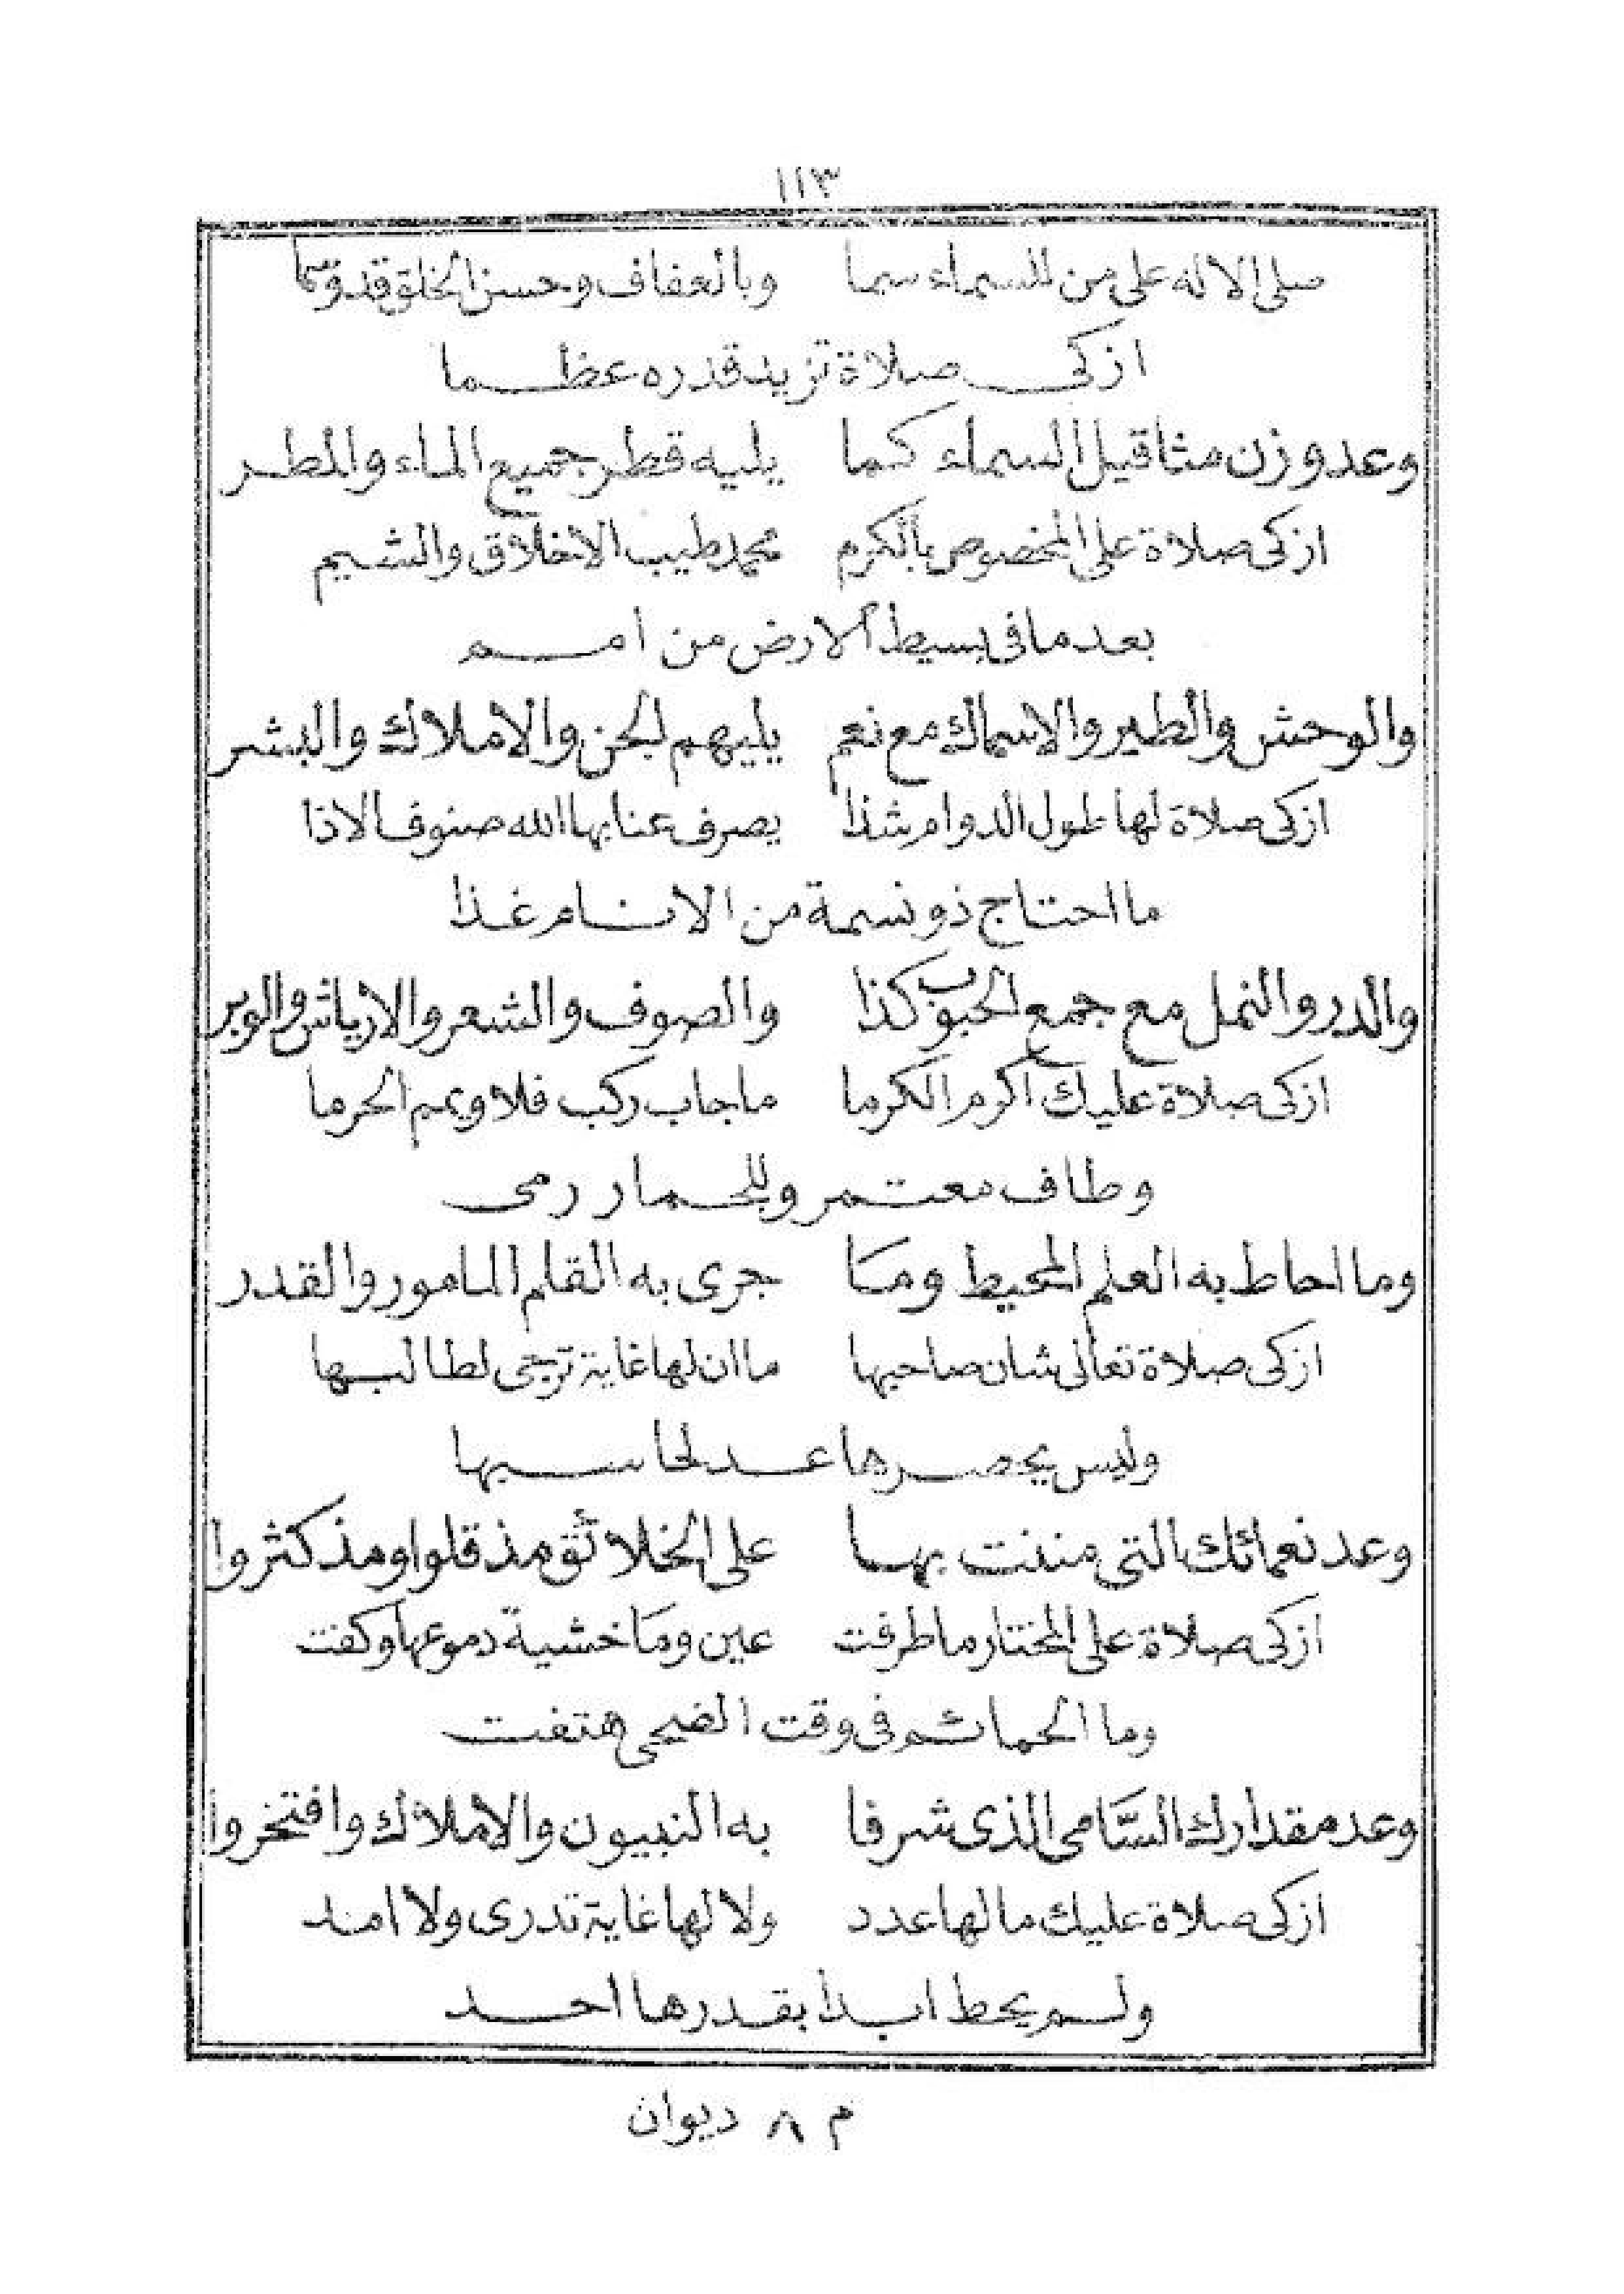 ١١٣
صلى الاله على من للسماء سما وبالعفاف وحسن الخلق قد وسما
ازكى صلاة تزيد قدره عظما
وعد وزن مثاقيل السماء كما يليه قطر جميع الماء والمطر
ازكى صلاة على المخصوص بالكرم محمد طيب الاخلاق والشيم
بعد ما فى بسيط الارض من امم
والوحش والطير والاسماك مع نعم يليهم الجن والاملاك والبشر
ازكى صلاة لها طول الدوام شذا يصرف عنا بها الله صنوف الاذا
ما احتاج ذو نسمة من الانام غذا
والدر والنمل مع جمع الحبوب كذا والصوف والشعر والارياش والوبر
ازكى صلاة عليك اكرم الكرما ما جاب ركب فلا ويمم الحرما
وطاف معتمر وللجمار رمى
وما احاط به العلم المحيط وما جرى به القلم المامور والقدر
ازكى صلاة تعالى شان صاحبها ما ان لها غاية ترجى لطالبها
وليس يحصرها عد لحاسبها
وعد نعمائك التى مننت بها على الخلائق مذ قلوا ومذ كثروا
ازكى صلاة على المختار ما طرفت عين وما خشية دموعها وكفت
وما الحمائم فى وقت الضحى هتفت
وعد مقدارك السَّامى الذى شرفا به النبيون والاملاك وافتخروا
ازكى صلاة عليك ما لها عدد ولا لها غاية تدرى ولا امد
ولم يحط ابدا بقدرها احد
م ٨ ديوان